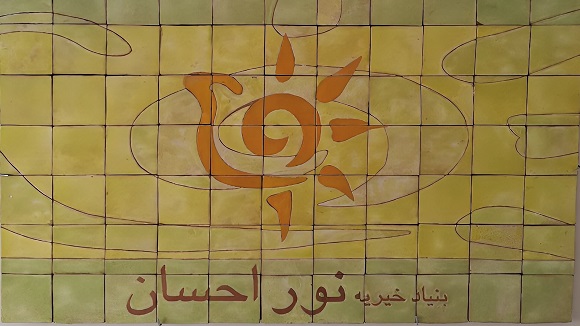 بنیاد خیریه نور احسان